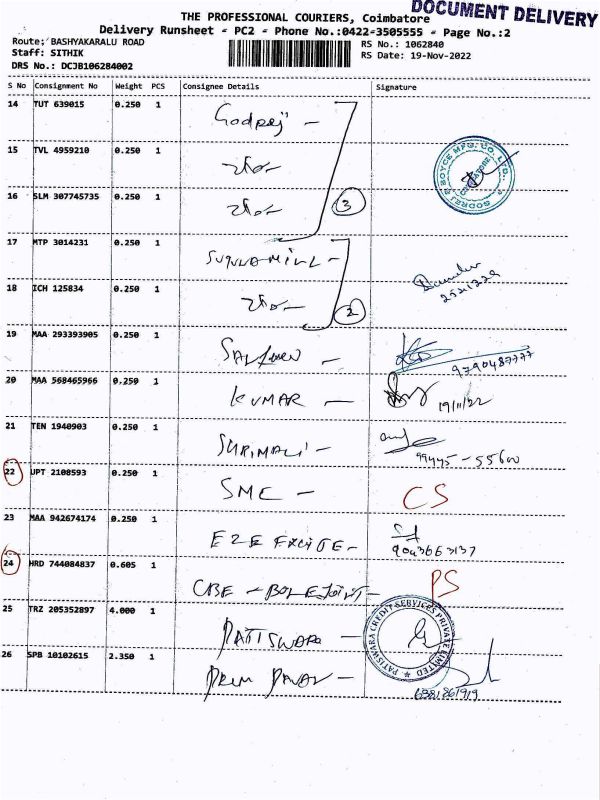 DOCUMENT DELIVERY
THE PROFESSIONAL COURIERS, Coimbatore
Delivery Runsheet - PC2 - Phone No.:0422-3505555 - Page No.:2
Route: BASHYAKARALU ROAD
RS No.: 1062840
Staff: SITHIK
RS Date: 19-Nov-2022
DRS No.: DCJB106284002
S No Consignment No Weight PCS Consignee Details Signature
14 TUT 639015 0.250 1
Godrej -
15 TVL 4959210 0.250 1
GODREJ & BOYCE MFG. CO. LTD.
16 SLM 307745735 0.250 1
3
17 MTP 3014231 0.250 1
18 ICH 125834 0.250 1
2521229
2
19 MAA 293393905 0.250 1
9790487777
20 MAA 568465966 0.250 1
KUMAR -
19/11/22
21 TEN 1940903 0.250 1
99445-55600
22 UPT 2108593 0.250 1
SMC -
CS
23 MAA 942674174 0.250 1
E2E
9043663137
24 HRD 744084837 0.605 1
CBE -
PS
25 TRZ 205352897 4.000 1
PATISWARA -
PATISWARA CREDIT SERVICES PRIVATE LIMITED
26 SPB 10102615 2.350 1